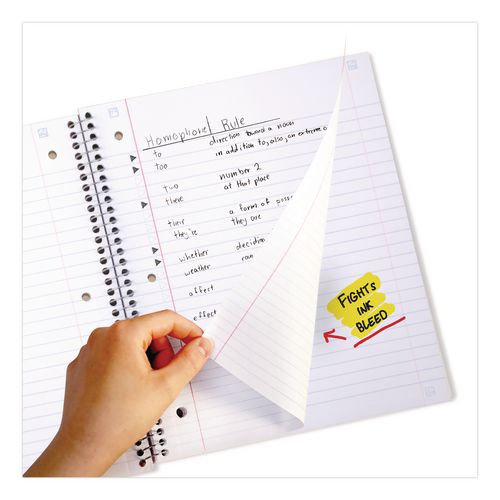 Homophone/ Rule
to direction toward a noun
too in addition to, also, an extreme
two number 2
there at that place
their a form of
they're they are
whether
weather
affect
effect
FIGHTS
INK
BLEED